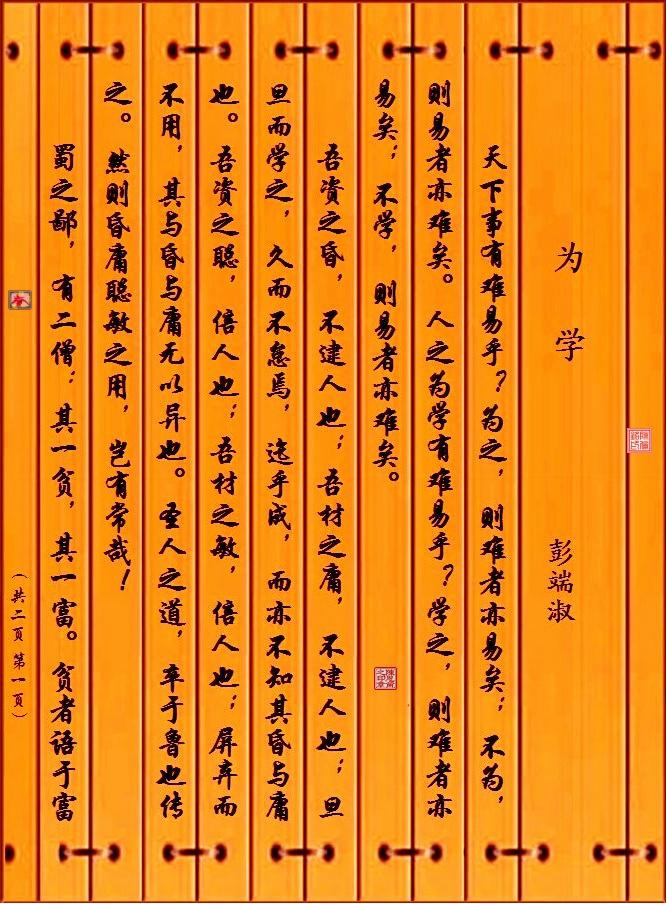 为学
彭端淑
天下事有难易乎？为之，则难者亦易矣；不为，
则易者亦难矣。人之为学有难易乎？学之，则难者亦
易矣；不学，则易者亦难矣。
吾资之昏，不逮人也；吾材之庸，不逮人也；旦
旦而学之，久而不怠焉，迄乎成，而亦不知其昏与庸
也。吾资之聪，倍人也；吾材之敏，倍人也；屏弃而
不用，其与昏与庸无以异也。圣人之道，卒于鲁也传
之。然则昏庸聪敏之用，岂有常哉！
蜀之鄙，有二僧：其一贫，其一富。贫者语于富
（共二页 第一页）